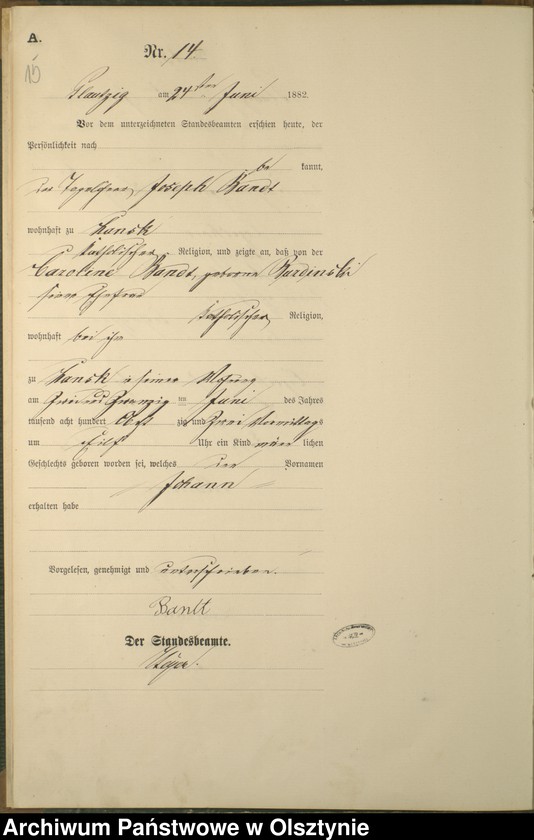 A.
Nr. 14
15
am 24ten Juni 1882.
Vor dem unterzeichneten Standesbeamten erschien heute, der
Persönlichkeit nach
be kannt,
der Joseph Bandt
wohnhaft zu Hansk
katholischer Religion, und zeigte an, daß von der
Caroline Bandt, geborne Burdinski
seiner Ehefrau
katholischer Religion,
wohnhaft bei ihm
zu Hansk in seiner Wohnung
am zwei und zwanzig ten Juni des Jahres
tausend acht hundert acht zig und zwei Vormittags
um elf Uhr ein Kind männ lichen
Geschlechts geboren worden sei, welches den Vornamen
Johann
erhalten habe
Vorgelesen, genehmigt und unterschrieben.
Bandt
Der Standesbeamte.
Archiwum Państwowe w Olsztynie